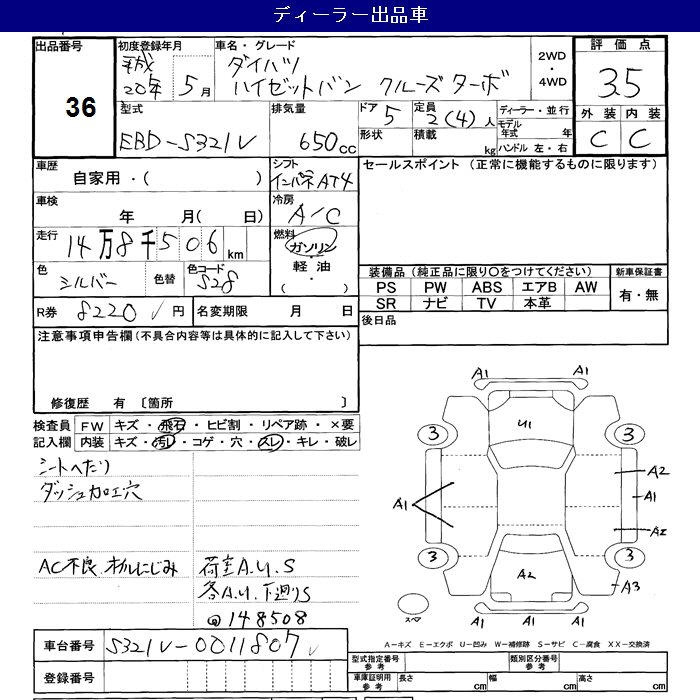 ディーラー出品車
出品番号
36
初度登録年月
平成
20年 5月
車名・グレード
ダイハツ
ハイゼットバン クルーズターボ
2WD
・
4WD
評価点
3.5
外装 内装
C C
型式
EBD-S321V
排気量
650cc
ドア
5
形状
定員
2(4)人
積載
kg
ディーラー・並行
モデル年式 年
ハンドル 左・右
車歴
自家用・( )
シフト
インパネAT4
車検
年 月( 日)
冷房
A/C
走行
14万8千506km
燃料
ガソリン
・
軽油
・
( )
色
シルバー
色替
色コード
S28
R券 8220円
名変期限 月 日
セールスポイント(正常に機能するものに限ります)
装備品(純正品に限り○をつけてください)
PS PW ABS エアB AW
SR ナビ TV 本革
新車保証書
有・無
後日品
注意事項申告欄(不具合内容等は具体的に記入して下さい)
修復歴 有 〔箇所 〕
検査員記入欄
FW キズ・飛石・ヒビ割・リペア跡・×要
内装 キズ・汚レ・コゲ・穴・スレ・キレ・破レ
シートへたり
ダッシュ加工穴
AC不良 オイルにじみ
荷室A.U.S
各A.U 下廻りS
@148508
A1
A1 A1
U1
3 3
A2
A1 A1
A2
3 3
A2 A3
スペア
A1 A1 A1
A-キズ E-エクボ U-凹み W-補修跡 S-サビ C-腐食 XX-交換済
車台番号 S321V-0011807
登録番号
型式指定番号 参考
類別区分番号 参考
車庫証明用 参考
長さ cm
幅 cm
高さ cm